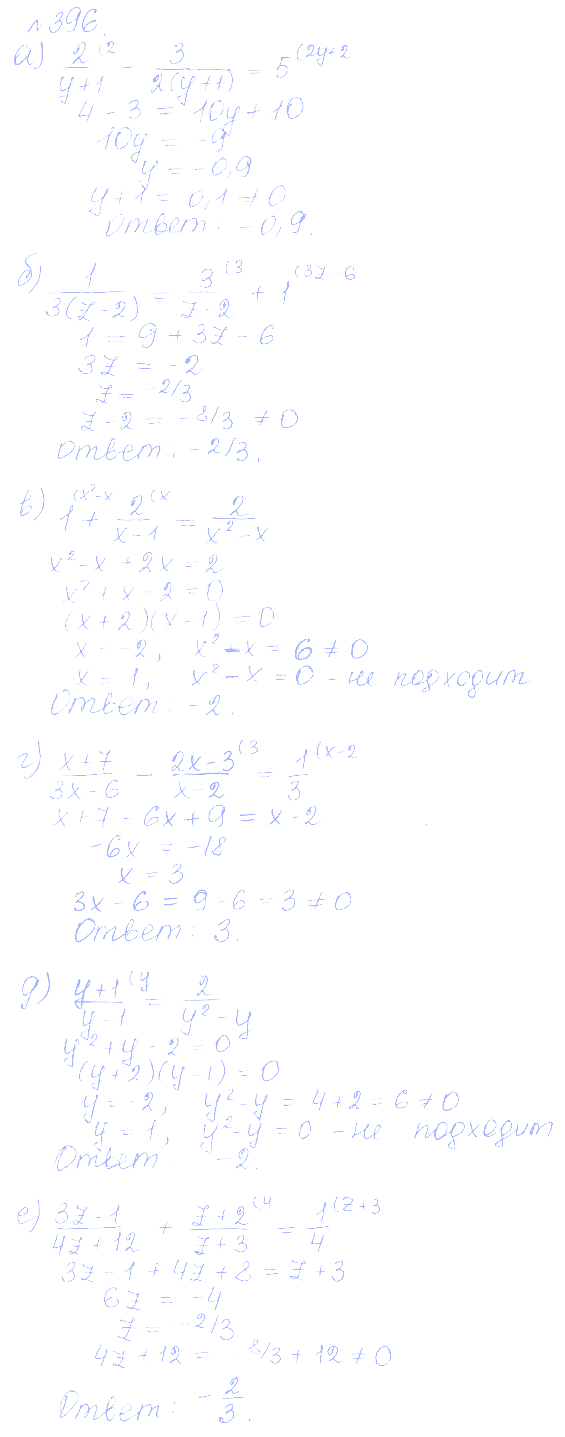 №396.
а) 2/(y+1) (2 − 3/(2(y+1)) = 5 (2y+2
4 − 3 = 10y + 10
10y = −9
y = −0,9
y + 1 = 0,1 ≠ 0
Ответ: −0,9.
б) 1/(3(z−2)) = 3/(z−2) (3 + 1 (3z−6
1 = 9 + 3z − 6
3z = −2
z = −2/3
z − 2 = −8/3 ≠ 0
Ответ: −2/3.
в) 1 (x²−x + 2/(x−1) (x = 2/(x²−x)
x² − x + 2x = 2
x² + x − 2 = 0
(x+2)(x−1) = 0
x = −2, x² − x = 6 ≠ 0
x = 1, x² − x = 0 − не подходит
Ответ: −2.
г) (x+7)/(3x−6) − (2x−3)/(x−2) (3 = 1/3 (x−2
x + 7 − 6x + 9 = x − 2
−6x = −18
x = 3
3x − 6 = 9 − 6 = 3 ≠ 0
Ответ: 3.
д) (y+1)/(y−1) (y = 2/(y²−y)
y² + y − 2 = 0
(y+2)(y−1) = 0
y = −2, y² − y = 4 + 2 = 6 ≠ 0
y = 1, y² − y = 0 − не подходит
Ответ −2.
е) (3z−1)/(4z+12) + (z+2)/(z+3) (4 = 1/4 (z+3
3z − 1 + 4z + 8 = z + 3
6z = −4
z = −2/3
4z + 12 = −8/3 + 12 ≠ 0
Ответ: −2/3.